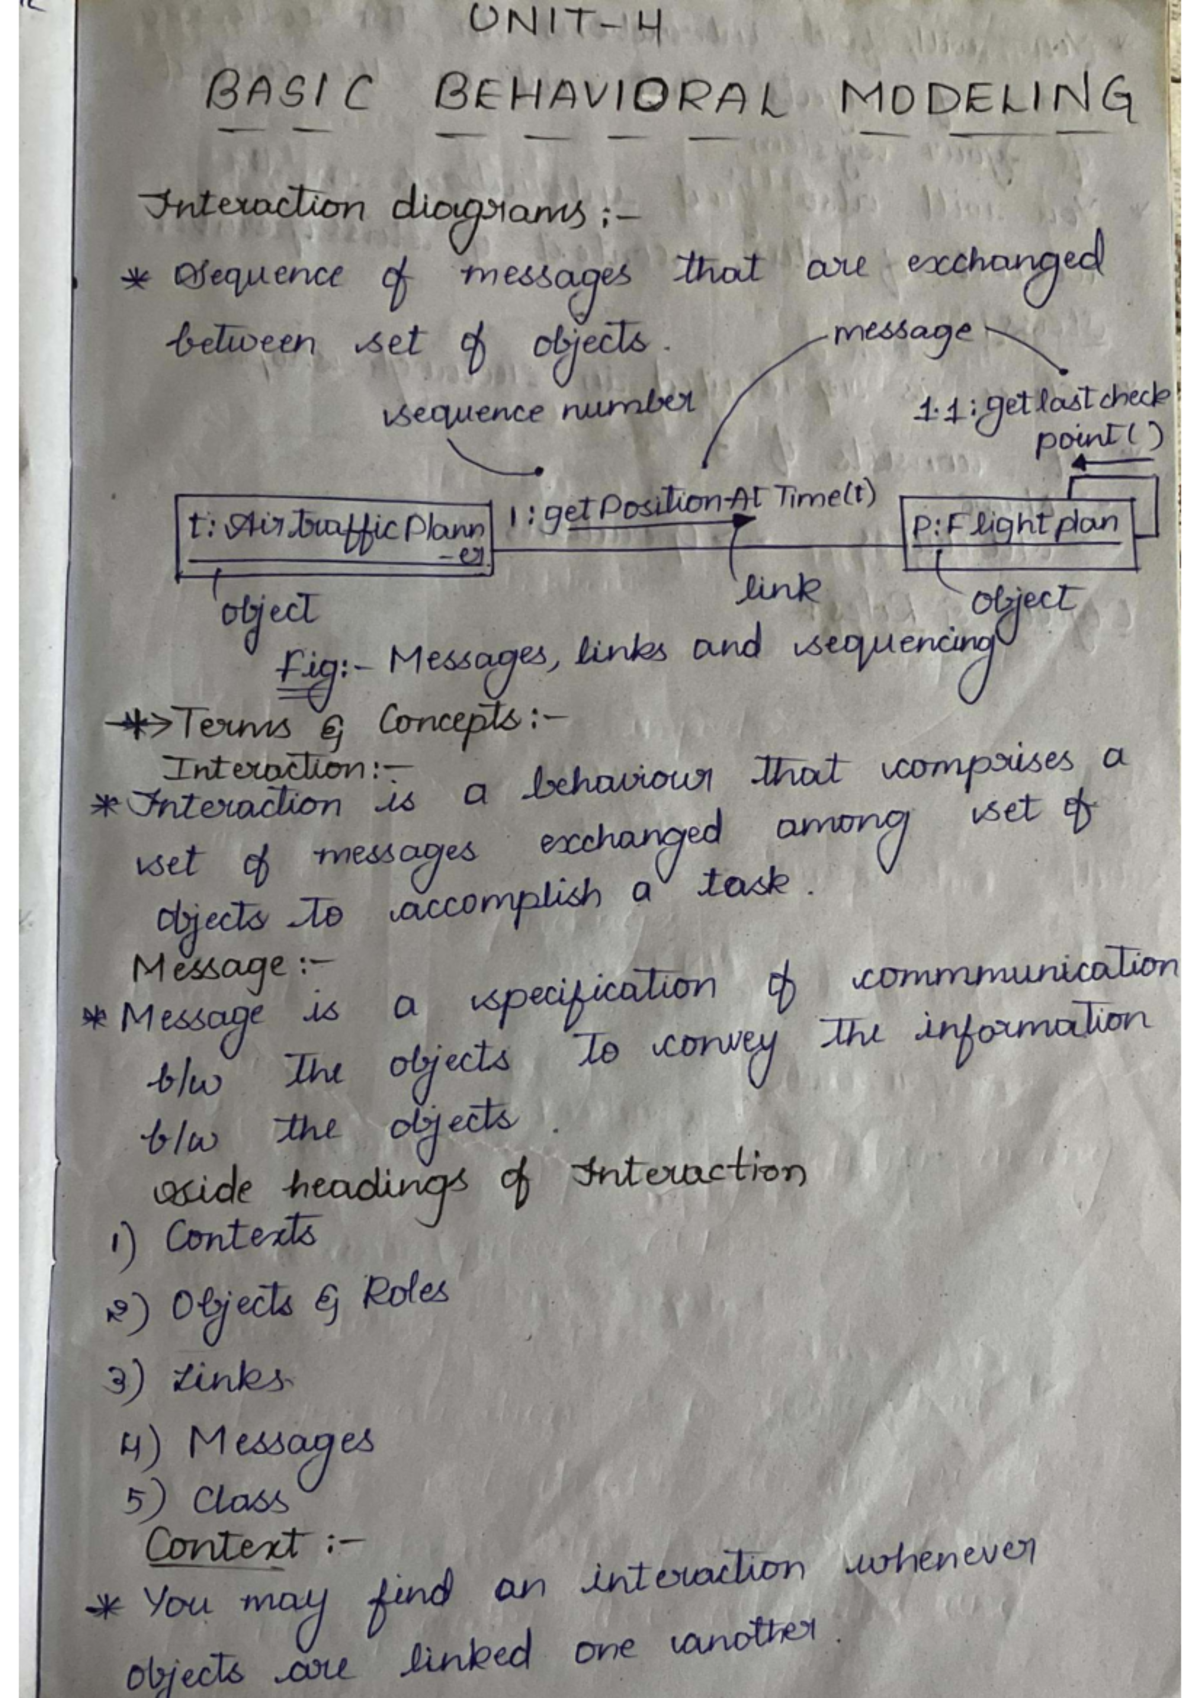 UNIT-4
BASIC BEHAVIORAL MODELING
Interaction diagrams :-
* Sequence of messages that are exchanged
between set of objects.
message
sequence number
1.1: get last check
point( )
t: Air traffic Plann
-er
1: get Position At Time(t)
P: Flight plan
object
link
object
Fig:- Messages, links and sequencing
*> Terms & Concepts :-
Interaction :-
* Interaction is a behaviour that comprises a
set of messages exchanged among set of
objects to accomplish a task.
Message :-
* Message is a specification of commmunication
b/w the objects to convey the information
b/w the objects.
side headings of Interaction
1) Contexts
2) Objects & Roles
3) Links
4) Messages
5) Class
Context :-
* You may find an interaction whenever
objects are linked one another.